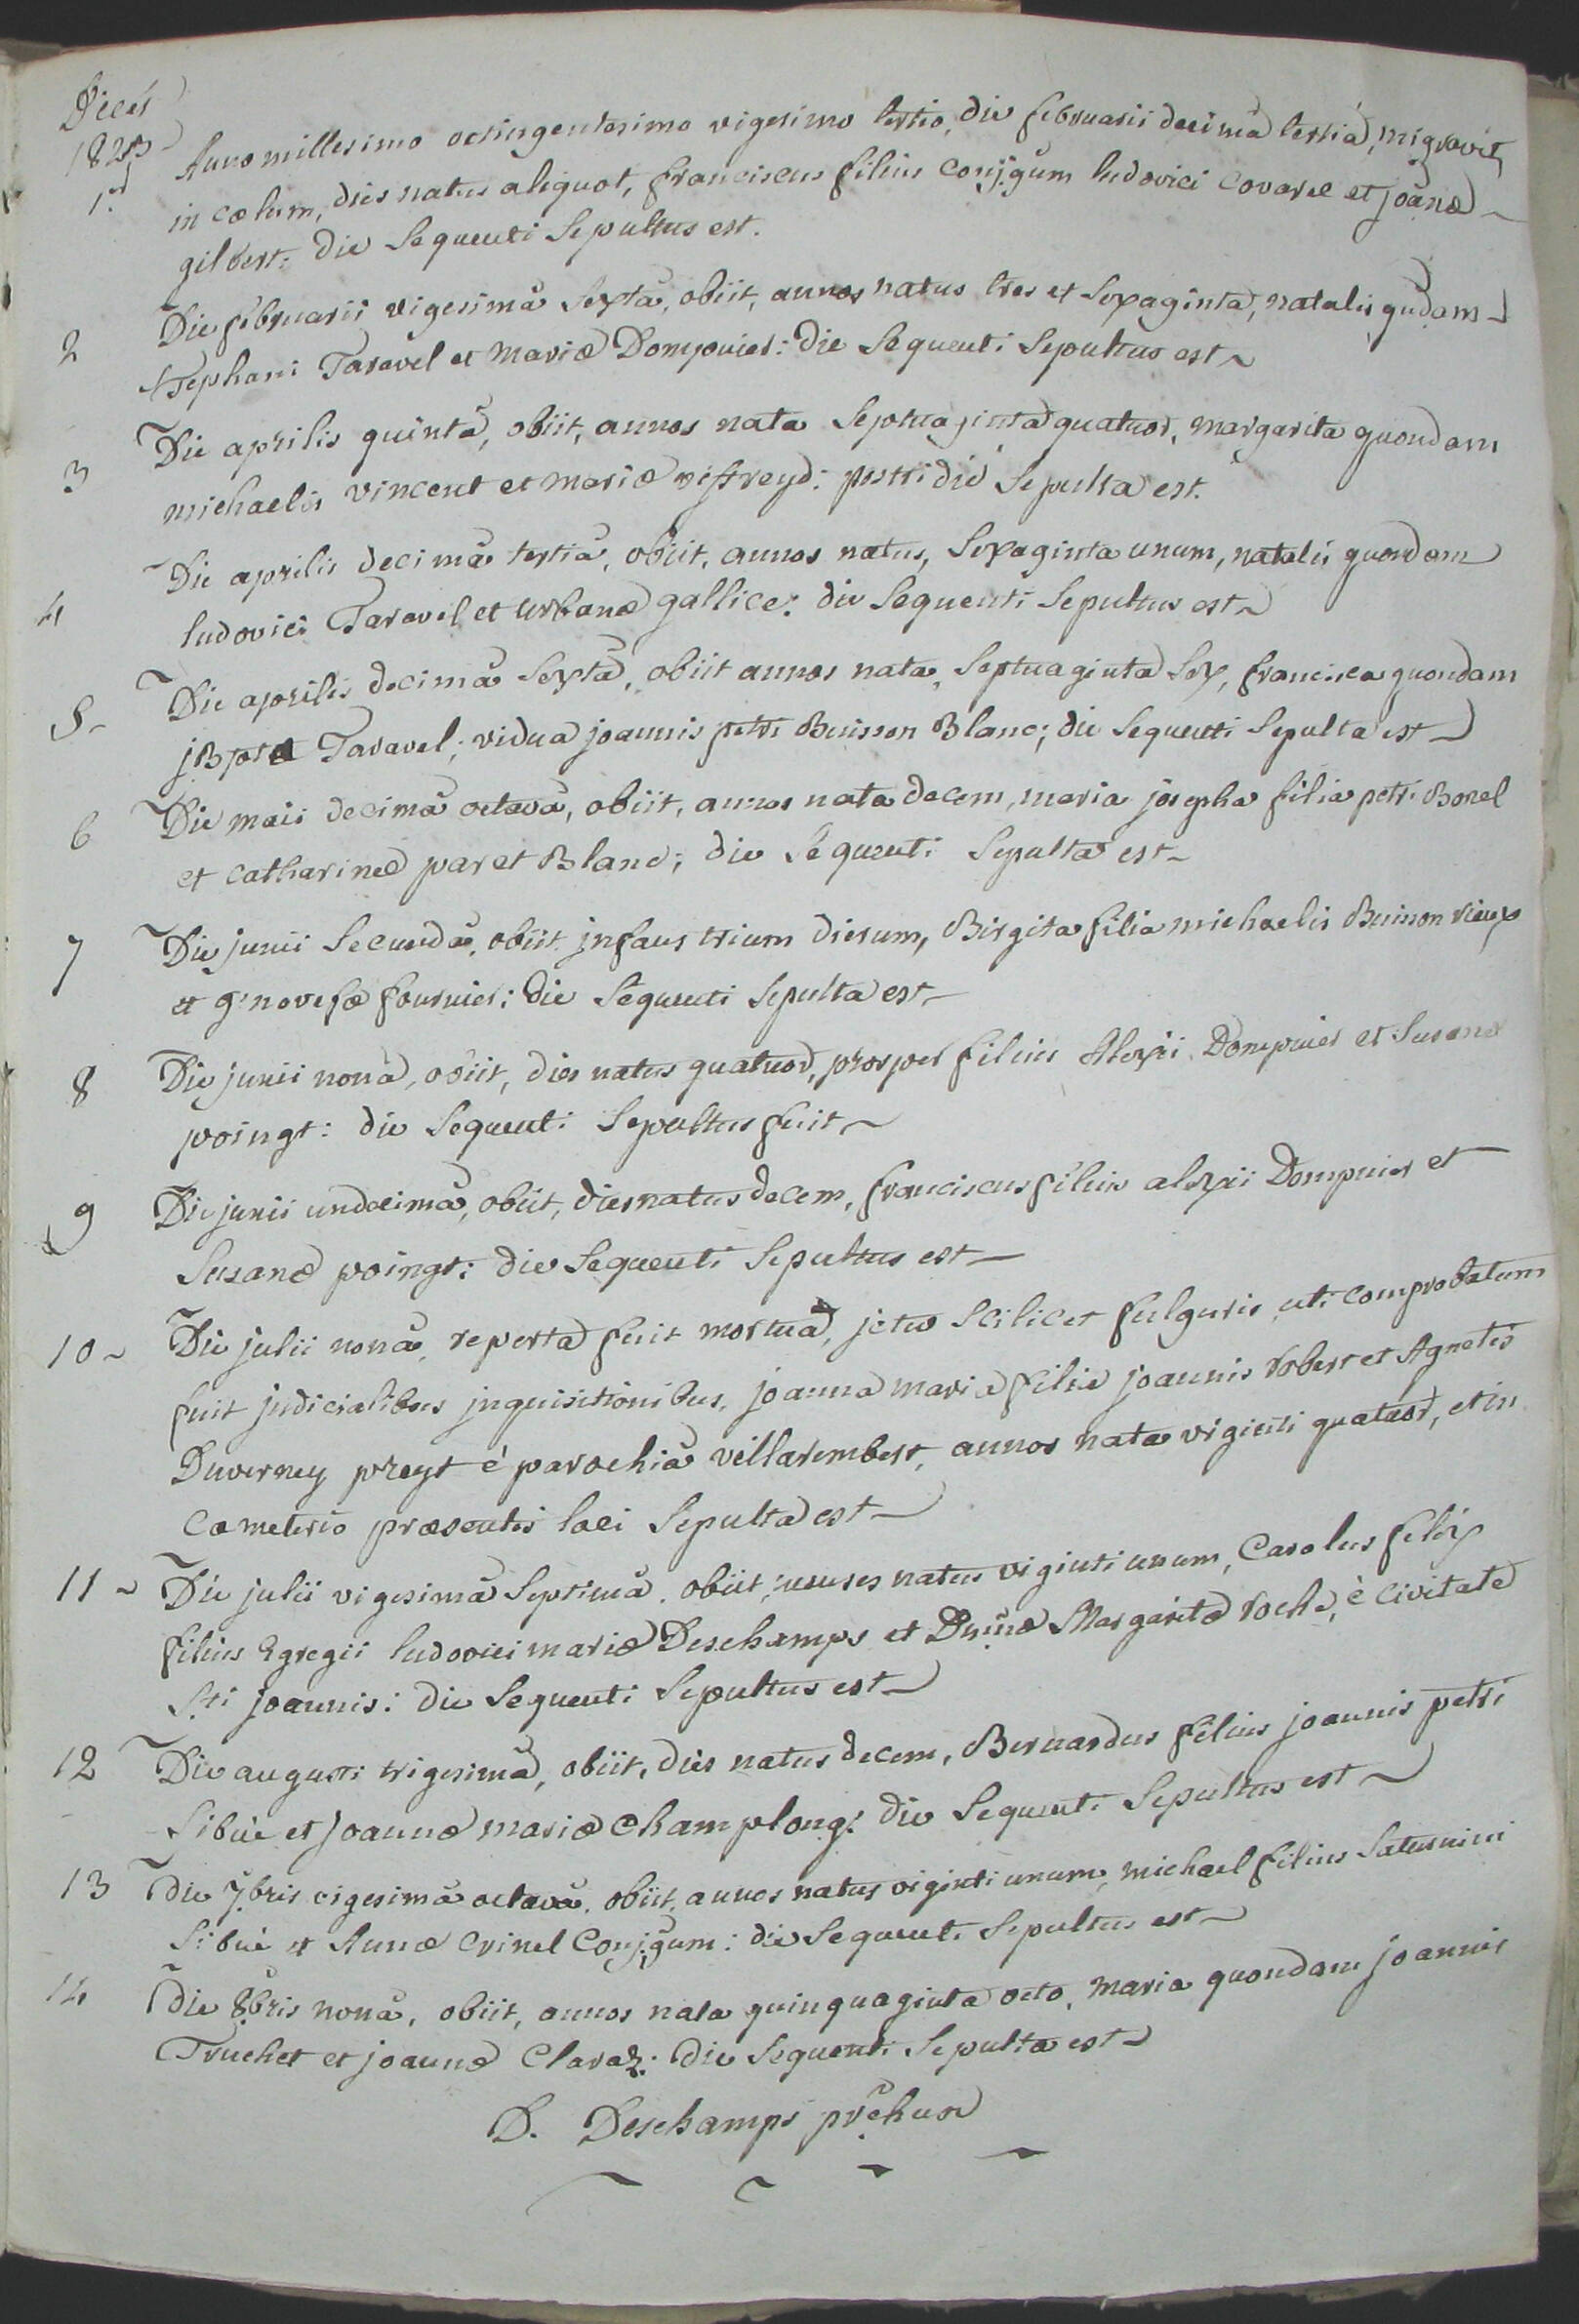 Décés
1823
1. Anno millesimo octingentesimo vigesimo tertio, die februarii decimâ tertiâ, migravit
in cœlum, dies natus aliquot, franciscus filius conj:gum ludovici covarel et joanæ
gilbert: die Sequenti Sepultus est.
2 Die februarii vigesimâ Sextâ, obiit, annos natus tres et Sexaginta, natalis qudam
Stephani Taravel et mariæ Dompnier: die Sequenti Sepultus est
3 Die aprilis quintâ, obiit, annos nata Septuaginta quatuor, margarita quondam
michaelis vincent et mariæ viffreyd: postridie Sepulta est.
4 Die aprilis decimâ tertiâ, obiit, annos natus, Sexaginta unum, natalis quondam
ludovici Taravel et urbanæ gallice: die Sequenti Sepultus est
5 Die aprilis decimâ Sextâ, obiit annos nata, Septuaginta Sex, francisca quondam
jBptæ Taravel; vidua joannis petri Buisson Blanc; die Sequenti Sepulta est
6 Die maii decimâ octavâ, obiit, annos nata decem, maria josepha filia petri Borel
et catharinæ paret Blanc; die Sequenti Sepulta est
7 Die junii Secundâ, obiit, jnfans trium dierum, Birgita filia michaelis Buisson vieux
et genovefæ fournier: die Sequenti Sepulta est
8 Die junii nonâ, obiit, dies natus quatuor, prosper filius Alexii Dompnier et Susanæ
poingt: die Sequenti Sepultus fuit
9 Die junii undecimâ, obiit, dies natus decem, franciscus filius alexii Dompnier et
Susanæ poingt: die Sequenti Sepultus est
10 Die julii nonâ, reperta fuit mortua, jctu Scilicet fulguris, uti comprobatum
fuit judicialibus jnquisitionibus, joanna maria filia joannis Robert et Agnetis
Duverney preyt è parochiâ villarembert, annos nata viginti quatuor, et in
Cœmeterio præsentis loci Sepulta est
11 Die julii vigesimâ Septimâ, obiit, menses natus viginti unum, Carolus felix
filius Egregii ludovici mariæ Deschamps et Dnnæ Margaritæ Roche, è civitate
Sti joannis: die Sequenti Sepultus est
12 Die augusti trigesimâ, obiit, dies natus decem, Bernardus filius joannis petri
Sibué et joannæ mariæ Champlong: die Sequenti Sepultus est
13 die 7bris vigesimâ octavâ, obiit, annos natus viginti unum, michael filius Saturnini
Sibué et Annæ Crinel Conj:gum: die Sequenti Sepultus est
14 die 8bris nonâ, obiit, annos nata quinquaginta octo, maria quondam joannis
Truchet et joannæ Claraz: die Sequenti Sepulta est
D. Deschamps pr̃chus